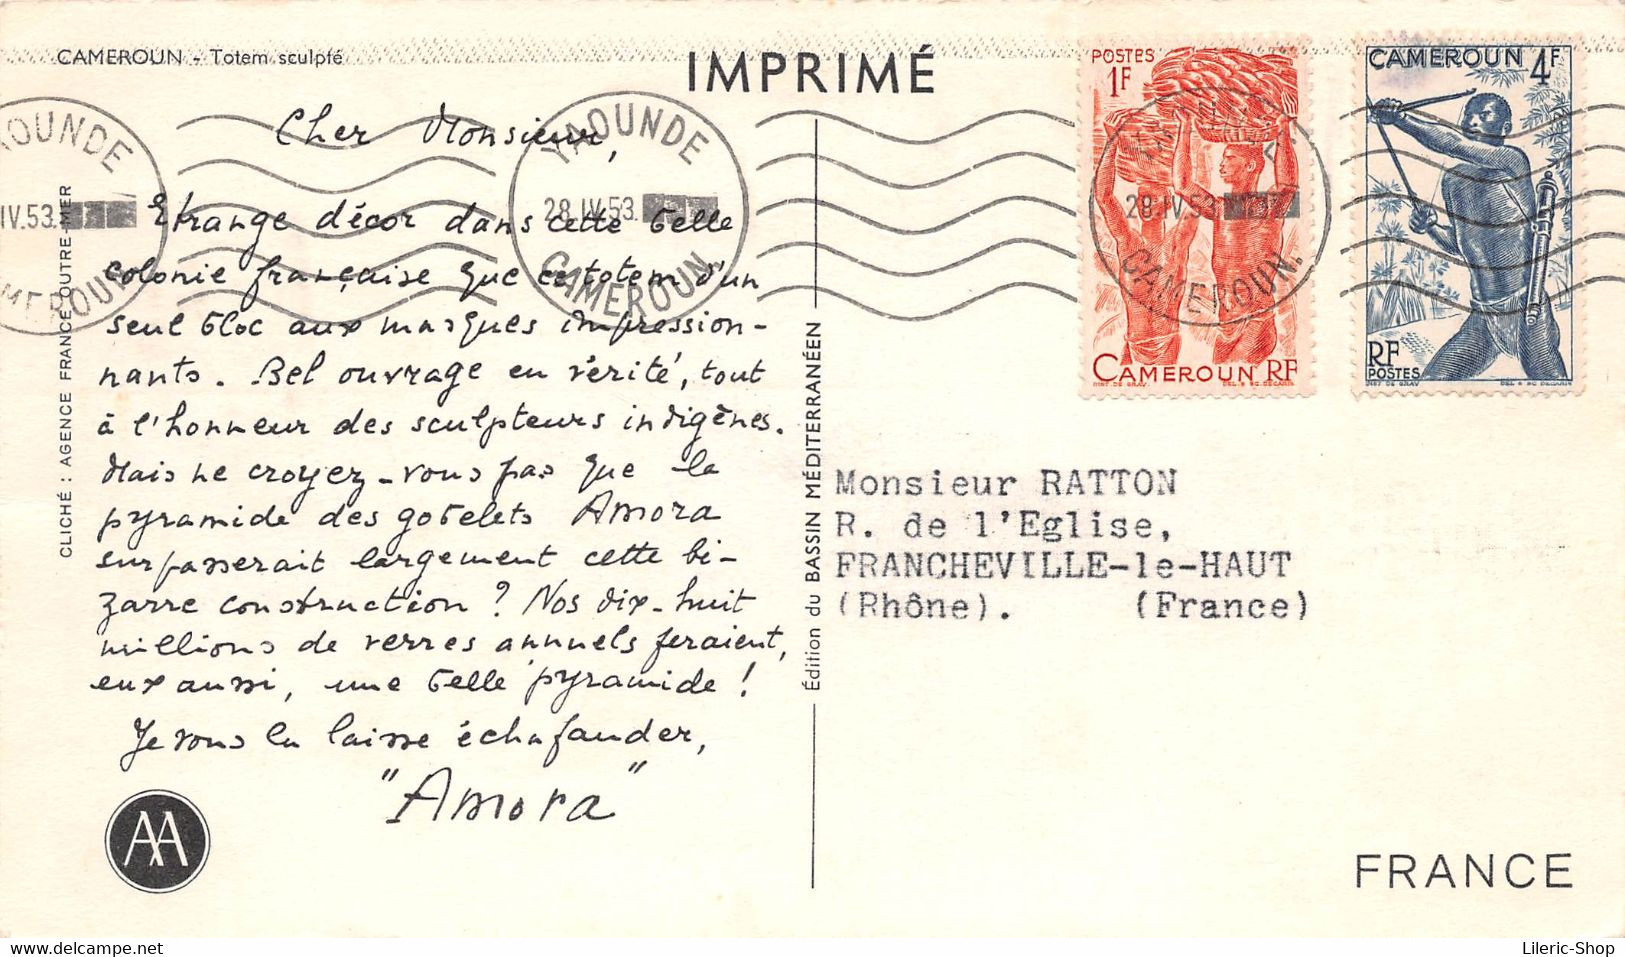 CAMEROUN - Totem sculpté
IMPRIMÉ
Cher Monsieur,
Etrange décor dans cette belle
colonie française que ce totem d'un
seul bloc aux masques impression-
nants. Bel ouvrage en vérité, tout
à l'honneur des sculpteurs indigènes.
Mais ne croyez-vous pas que la
pyramide des gobelets Amora
surpasserait largement cette bi-
zarre construction ? Nos dix-huit
millions de verres annuels feraient,
eux aussi, une belle pyramide !
Je vous la laisse échafauder,
"Amora"
AA
CLICHÉ : AGENCE FRANCE OUTRE-MER
Édition du BASSIN MÉDITERRANÉEN
OUNDE
IV.53.
MEROUN
YAOUNDE
28.IV.53.
CAMEROUN.
POSTES
1F
28.IV.53
CAMEROUN.
CAMEROUN RF
INST DE GRAV. DEL & SC. DECARIS
CAMEROUN 4F
RF
POSTES
INST DE GRAV. DEL & SC DECARIS
Monsieur RATTON
R. de l'Eglise,
FRANCHEVILLE-le-HAUT
(Rhône). (France)
FRANCE
Lileric-Shop
delcampe.net